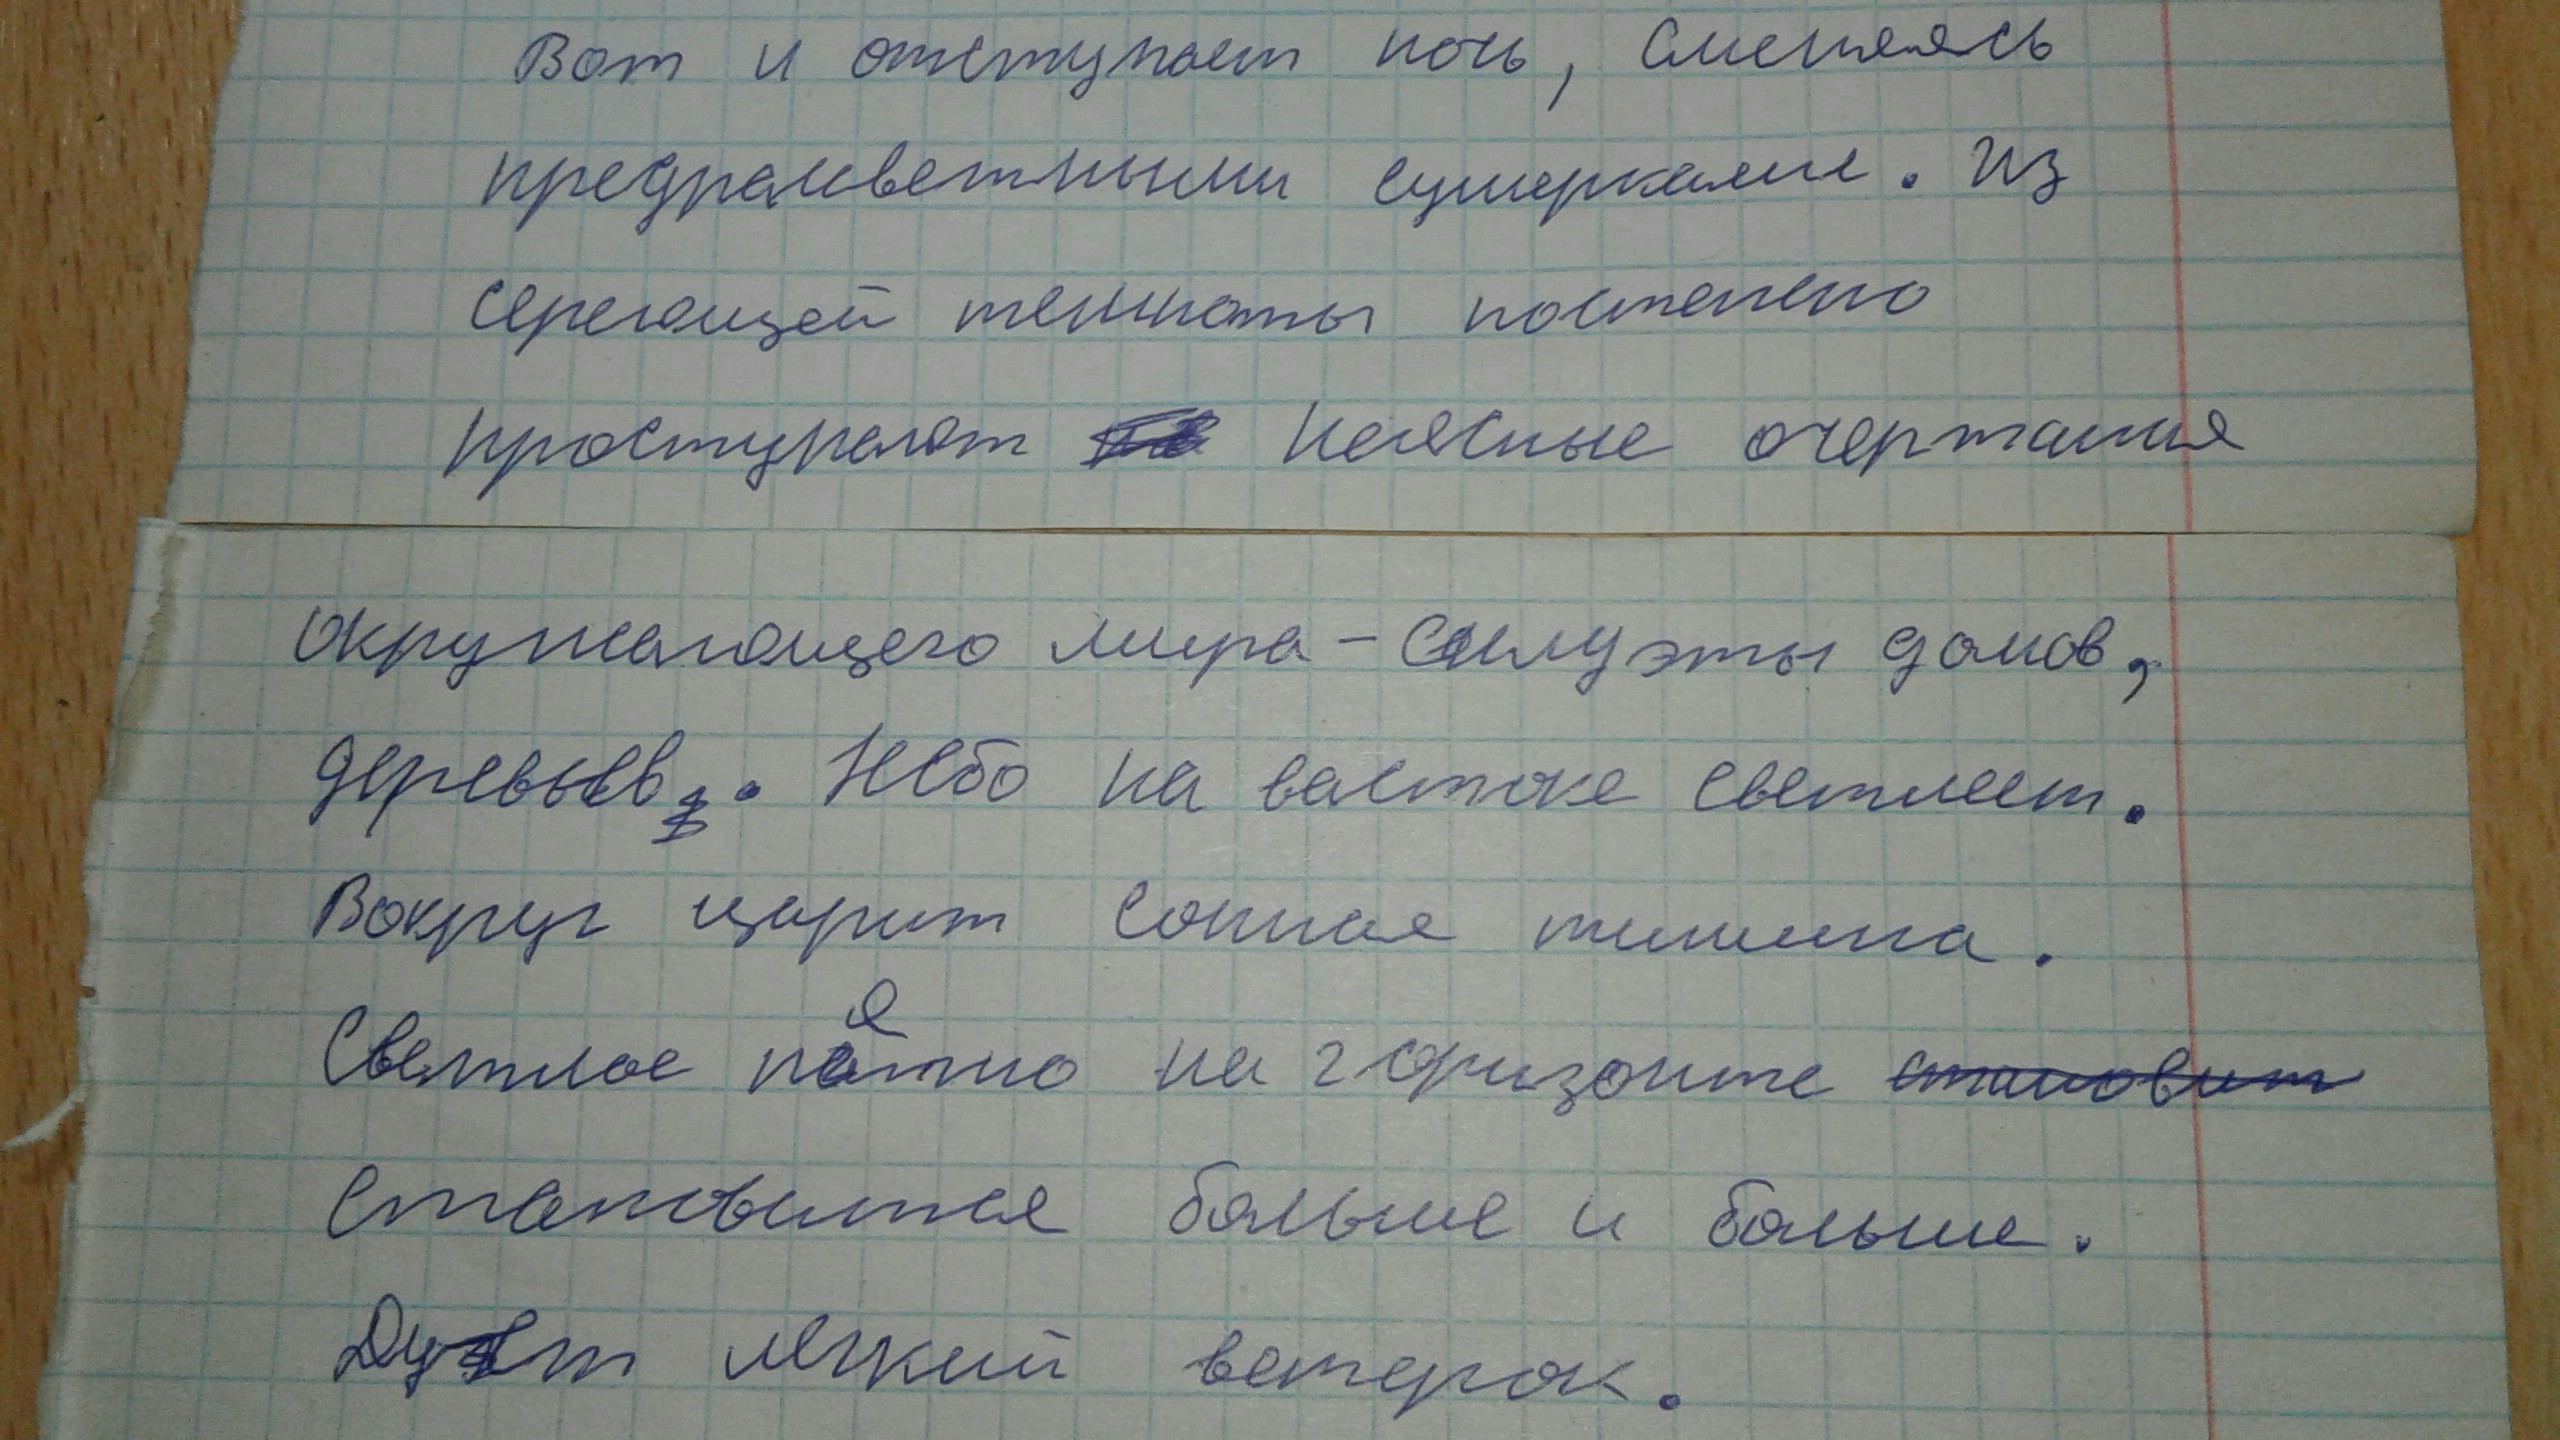 Вот и отступает ночь, сменяясь
предрасветными сумерками. Из
сереющей темноты постепено
проступают неясные очертания
окружающего мира - силуэты домов,
деревьев. Небо на востоке светлеет.
Вокруг царит сонная тишина.
Светлое пятно на горизонте становит
становится больше и больше.
Дует лёгкий ветерок.